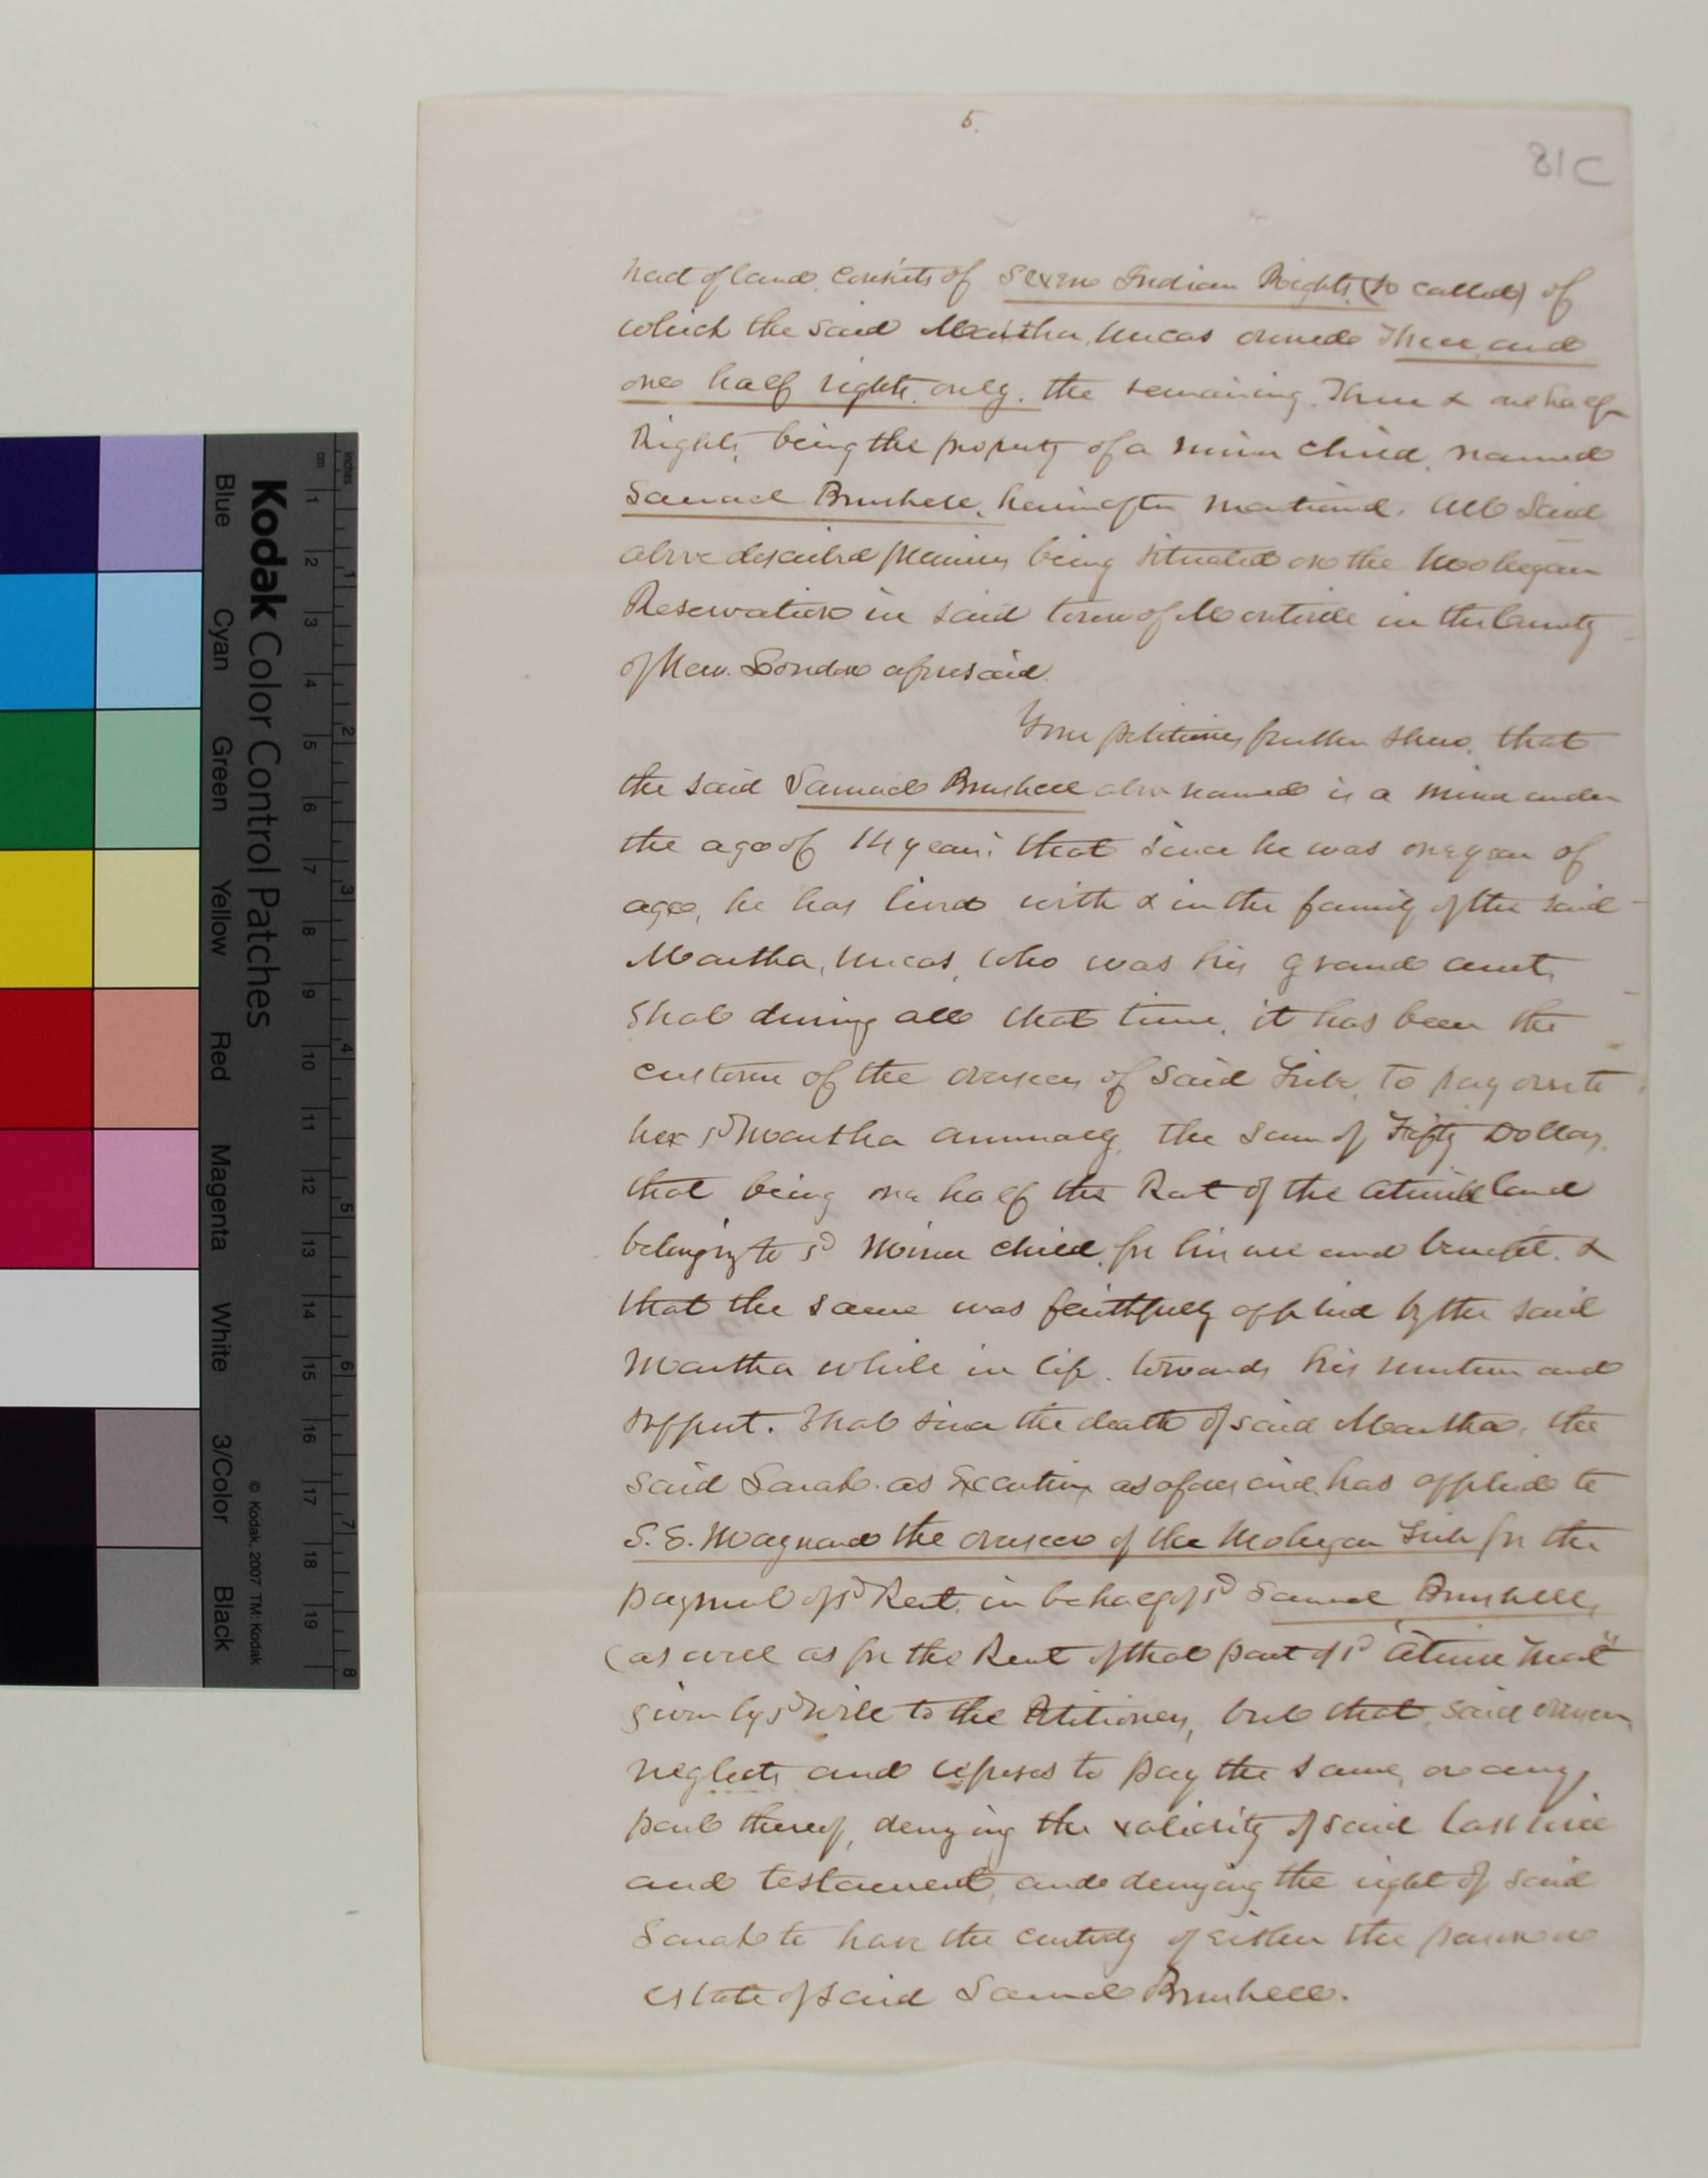 5.
81C
tract of land consists of Seven Indian Rights (so called) of
which the said Martha Uncas owned Three and
one half rights only. the remaining Three & one half
Rights, being the property of a minor child, named
Samuel Brushell, hereinafter mentioned. All Said
above described premises being situated on the Mohegan
Reservation in said town of Montville in the County
of New London aforesaid.
Your petitioners further shew, that
the said Samuel Brushell above named is a minor under
the age of 14 years: that since he was one year of
age, he has lived with & in the family of the said
Martha Uncas, who was his grand aunt,
That during all that time, it has been the
custom of the overseer of Said Tribe, to pay over to
her sd Martha annually, the sum of Fifty Dollars,
that being one half the Rent of the land
belonging to sd Minor child, for his use and benefit. &
that the same was faithfully applied by the said
Martha while in life towards his nurture and
support. That since the death of said Martha, the
said Sarah as Executrix as aforesaid, has applied to
S. E. Maynard the overseer of the Mohegan Tribe for the
payment of sd Rent, in behalf of sd Samuel Brushell,
(as well as for the Rent of that part of sd
given by sd Will to the Petitioners, but that said overseer
neglects and refuses to pay the same, or any
part thereof, denying the validity of said last will
and testament, and denying the right of said
Sarah to have the custody of either the person or
estate of said Samuel Brushell.
Kodak Color Control Patches
Blue Cyan Green Yellow Red Magenta White 3/Color Black
© Kodak, 2007 TM: Kodak
inches 1 2 3 4 5 6 7 8
cm 1 2 3 4 5 6 7 8 9 10 11 12 13 14 15 16 17 18 19